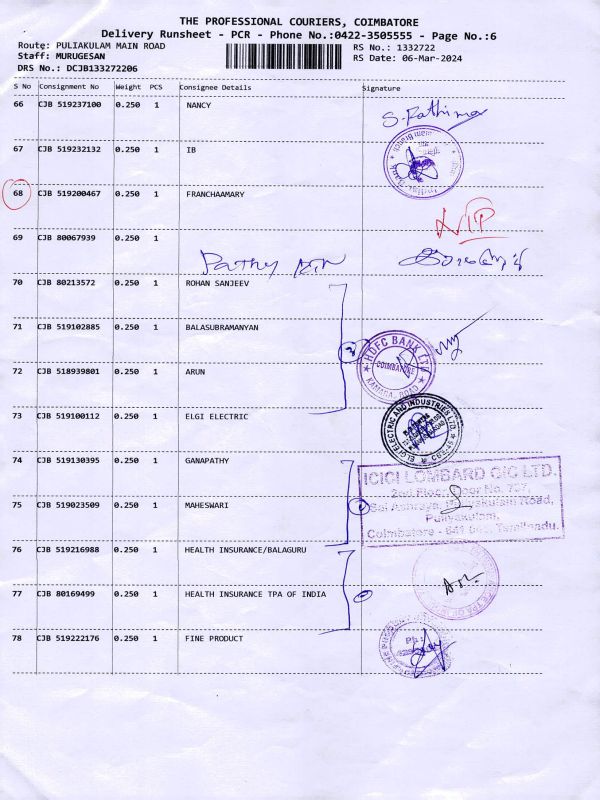 THE PROFESSIONAL COURIERS, COIMBATORE
Delivery Runsheet - PCR - Phone No.:0422-3505555 - Page No.:6
Route: PULIAKULAM MAIN ROAD RS No.: 1332722
Staff: MURUGESAN RS Date: 06-Mar-2024
DRS No.: DCJB133272206
S No Consignment No Weight PCS Consignee Details Signature
66 CJB 519237100 0.250 1 NANCY
S. Fathima
67 CJB 519232132 0.250 1 IB
68 CJB 519200467 0.250 1 FRANCHAAMARY
69 CJB 80067939 0.250 1
Pathy
70 CJB 80213572 0.250 1 ROHAN SANJEEV
71 CJB 519102885 0.250 1 BALASUBRAMANYAN
HDFC BANK LTD
72 CJB 518939801 0.250 1 ARUN
COIMBATORE
KAMARA. ROAD
73 CJB 519100112 0.250 1 ELGI ELECTRIC
ELGI ELECTRIC AND INDUSTRIES LTD.
74 CJB 519130395 0.250 1 GANAPATHY
ICICI LOMBARD GIC LTD.
2nd Floor, Door No. 707,
75 CJB 519023509 0.250 1 MAHESWARI
Sai Ashraya, Puliyakulam Road,
Puliyakulam,
Coimbatore - 641 Tamilnadu.
76 CJB 519216988 0.250 1 HEALTH INSURANCE/BALAGURU
77 CJB 80169499 0.250 1 HEALTH INSURANCE TPA OF INDIA
78 CJB 519222176 0.250 1 FINE PRODUCT